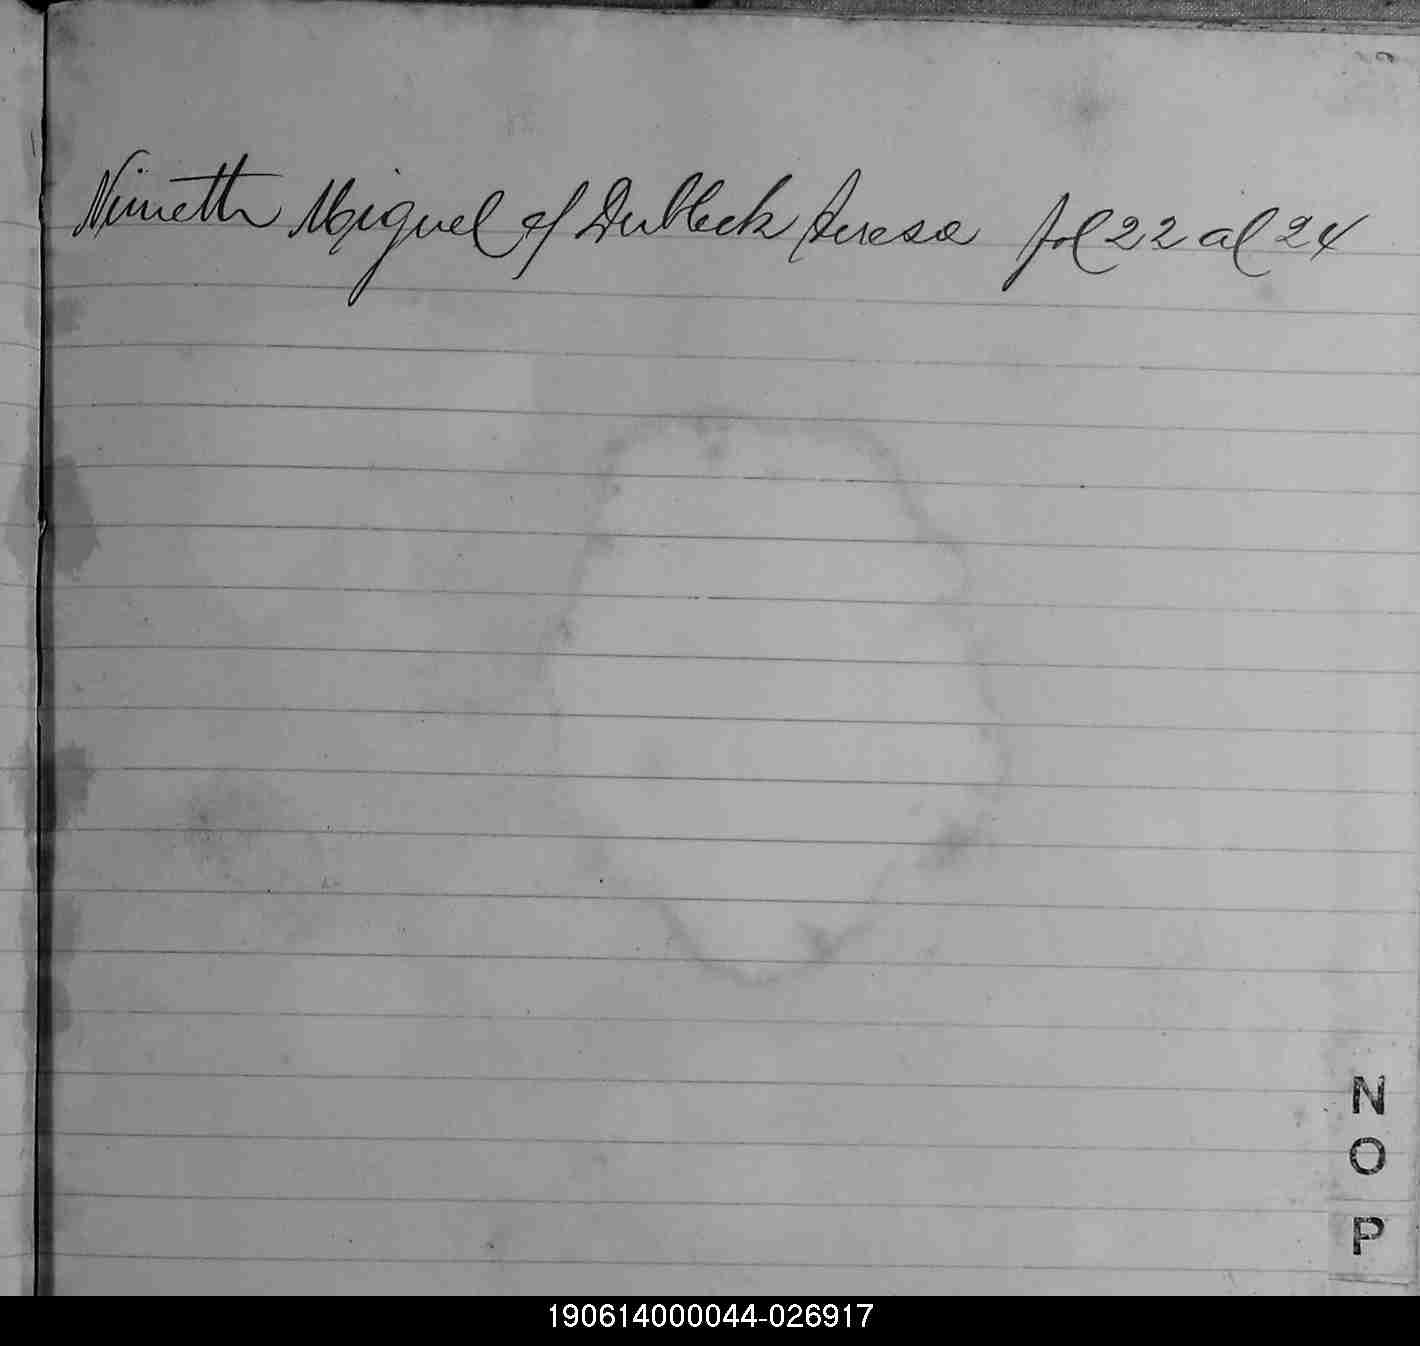 Nimeth Miguel cf Dubbeck Teresa fol 22 al 24
N
O
P
190614000044-026917